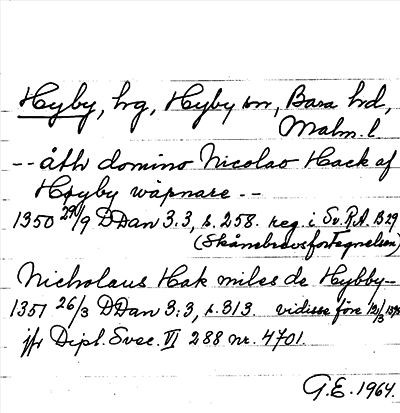 Hyby, hg, Hyby sn, Bara hd,
Malm. l.
-- åth domino Nicolao Hack af
Høyby wåpnare --
1350 29/9 DDan 3:3, s. 258. reg. i Sv.R.A. B29
(Skånebrevsfortegnelsen)
Nicholaus Hak miles de Hybby--
1351 26/3 DDan 3:3, s. 313. vidisse före 12/3
jfr Dipl. Svec. VI 288 nr. 4701.
G.E. 1964.